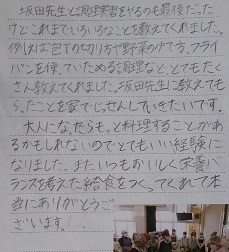 坂田先生と調理実習をやるのも最後だった
けどこれまでいろいろなことを教えてくれました。
例えば包丁の切り方や野菜のゆで方、フライ
パンを使っていためる調理など、とてもたく
さん教えてくれました。坂田先生に教えても
らったことを家でじっせんしていきたいです。
大人になったらもっと料理することがあ
るかもしれないのでとてもいい経験に
なりました。またいつもおいしく栄養バ
ランスを考えた給食をつくってくれて本
当にありがとうご
ざいます。